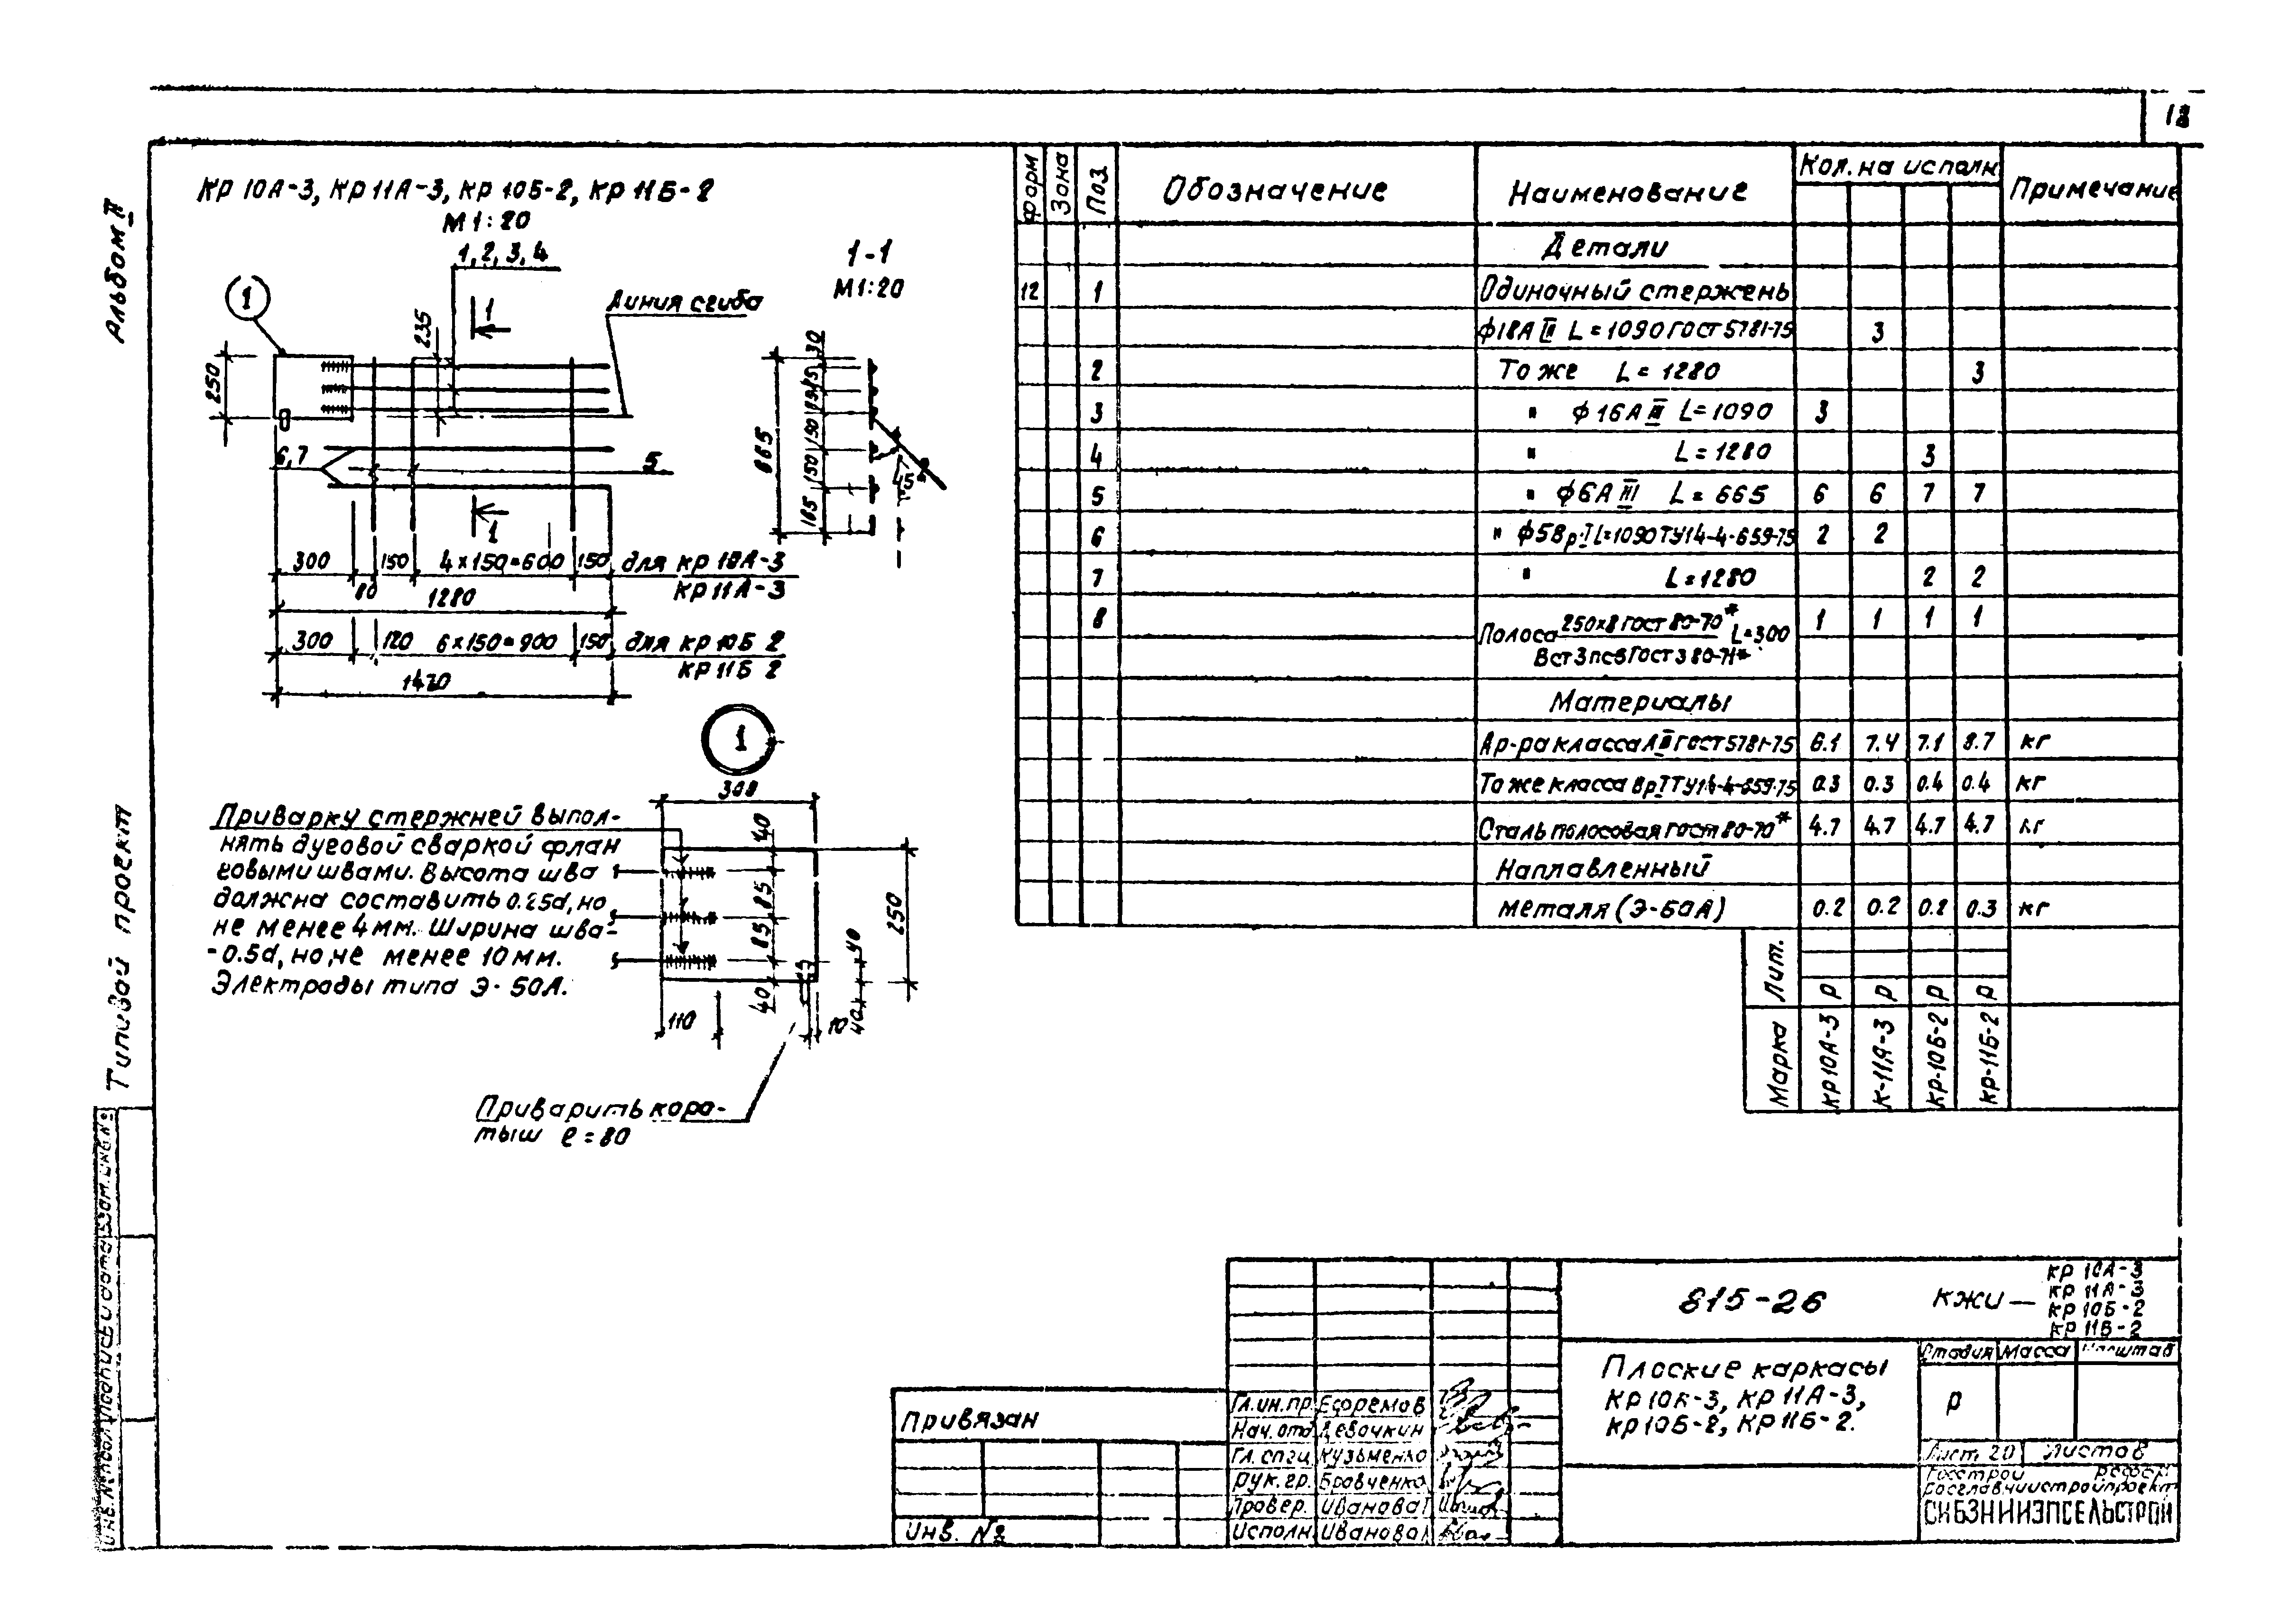 18
Альбом II
Типовой проект
КР 10А-3, КР 11А-3, КР 10Б-2, КР 11Б-2
М 1:20
1, 2, 3, 4
1
1
Линия сгиба
235
250
6,7
5
1
300 80 150 4×150=600 150 для КР 10А-3
КР 11А-3
1280
300 120 6×150=900 150 для КР 10Б 2
КР 11Б 2
1470
1-1
М1:20
30
85
85
150
150
165
665
45°
1
300
40
85
85
40
250
40
40
10
110
Приварку стержней выпол-
нять дуговой сваркой флан
говыми швами. Высота шва
должна составить 0.25d, но
не менее 4мм. Ширина шва-
-0.5d, но не менее 10 мм.
Электроды типа Э-50А.
Приварить коро-
тыш ℓ=80
Форм Зона Поз. Обозначение Наименование Кол. на исполн Примечание
Детали
12 1 Одиночный стержень
ф18А III L=1090 ГОСТ 5781-75 3
2 То же L=1280 3
3 " ф16А III L=1090 3
4 " L=1280 3
5 " ф6А III L=665 6 6 7 7
6 " ф5Вр-I L=1090 ТУ14-4-659-75 2 2
7 " L=1280 2 2
8 Полоса 250×8 ГОСТ 80-70* L=300 1 1 1 1
Вст3пс6 ГОСТ 380-71*
Материалы
Ар-ра класса АIII ГОСТ 5781-75 6.1 7.4 7.1 8.7 кг
То же класса ВрI ТУ14-4-659-75 0.3 0.3 0.4 0.4 кг
Сталь полосовая ГОСТ 80-70* 4.7 4.7 4.7 4.7 кг
Наплавленный
металл (Э-50А) 0.2 0.2 0.2 0.3 кг
Лит. Р Р Р Р
Марка КР10А-3 К-11А-3 КР-10Б-2 КР-11Б-2
815-26 КЖИ —
КР 10А-3
КР 11А-3
КР 10Б-2
КР 11Б-2
Плоские каркасы
КР 10А-3, КР 11А-3,
КР 10Б-2, КР 11Б-2.
Стадия Масса Масштаб
Р
Лист 20 Листов
Госстрой РСФСР
Росглавниистройпроект
СИБЗНИИЭПСЕЛЬСТРОЙ
Гл.ин.пр Ефремов
Нач. отд Девочкин
Гл. спец. Кузьменко
Рук. гр. Бровченко
Провер. Иванова
Исполн. Иванова
Привязан
Инв. №
Инв.№подл Подпись и дата Взам.инв.№